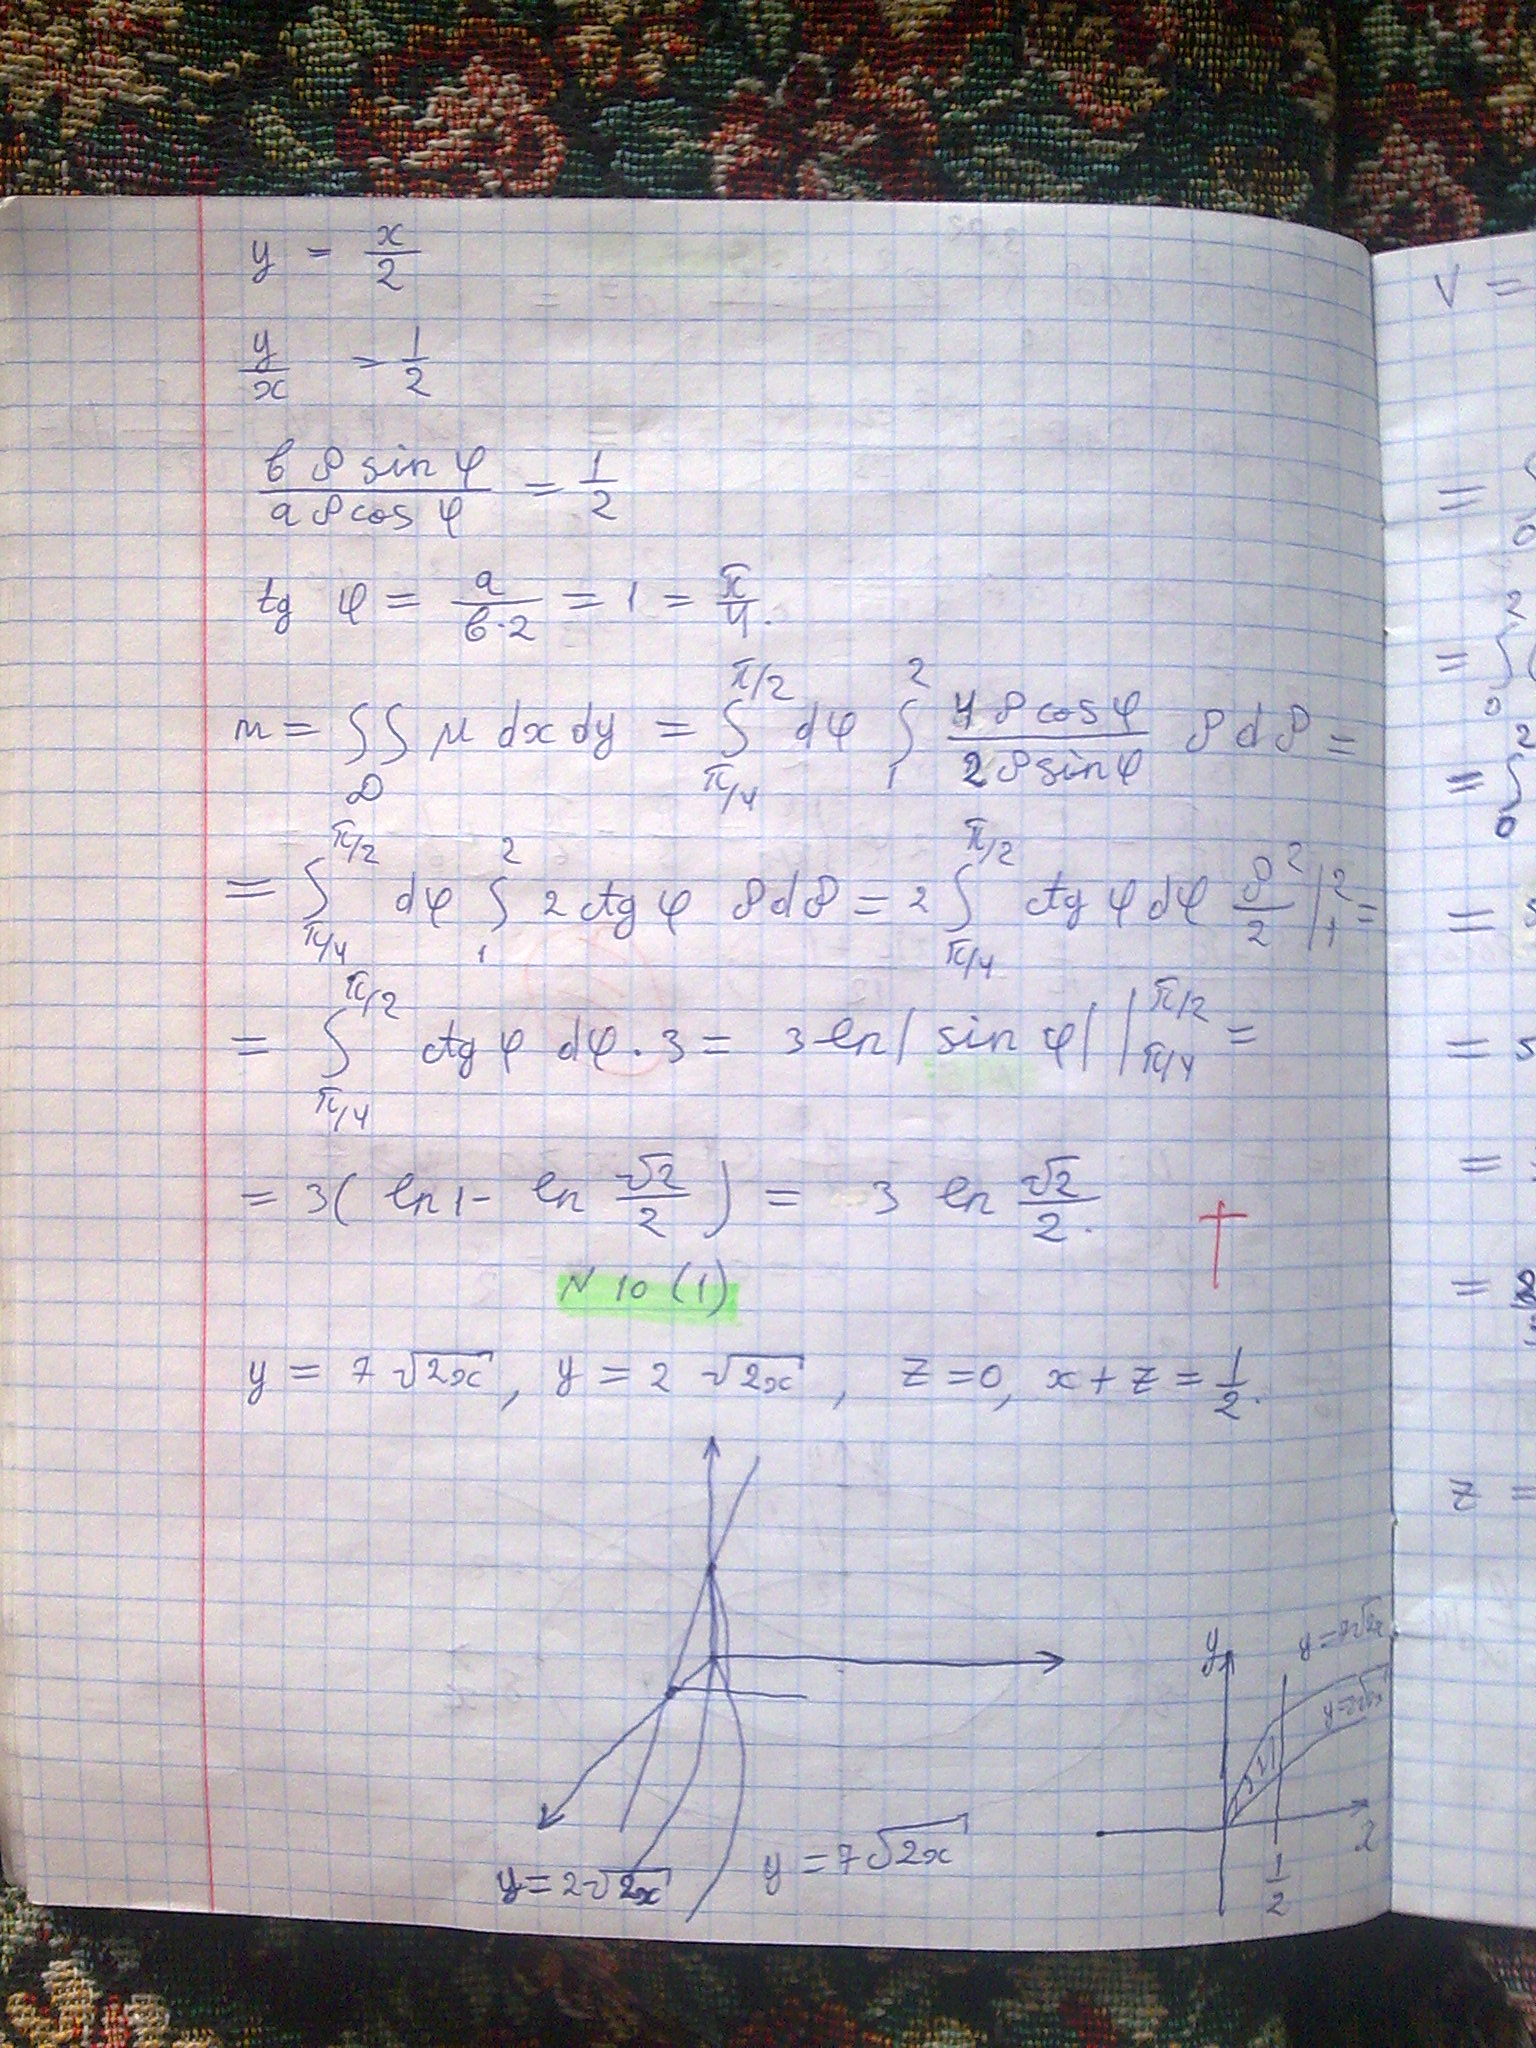 y = x/2
y/x = 1/2
(b ρ sin φ)/(a ρ cos φ) = 1/2
tg φ = a/(b·2) = 1 = π/4.
m = ∫∫_D μ dx dy = ∫_{π/4}^{π/2} dφ ∫_1^2 (4 ρ cos φ)/(2 ρ sin φ) ρ dρ =
= ∫_{π/4}^{π/2} dφ ∫_1^2 2 ctg φ ρ dρ = 2 ∫_{π/4}^{π/2} ctg φ dφ ρ²/2 |_1^2 =
= ∫_{π/4}^{π/2} ctg φ dφ · 3 = 3 ln| sin φ| |_{π/4}^{π/2} =
= 3( ln 1 - ln √2/2 ) = 3 ln √2/2.
N 10 (1)
y = 7 √2x, y = 2 √2x, z = 0, x + z = 1/2.
y = 2√2x
y = 7√2x
y
y = 7√2x
y = 2√2x
x
1/2
V =
=
= ∫_0^2
= ∫_0^2
=
=
=
=
z =